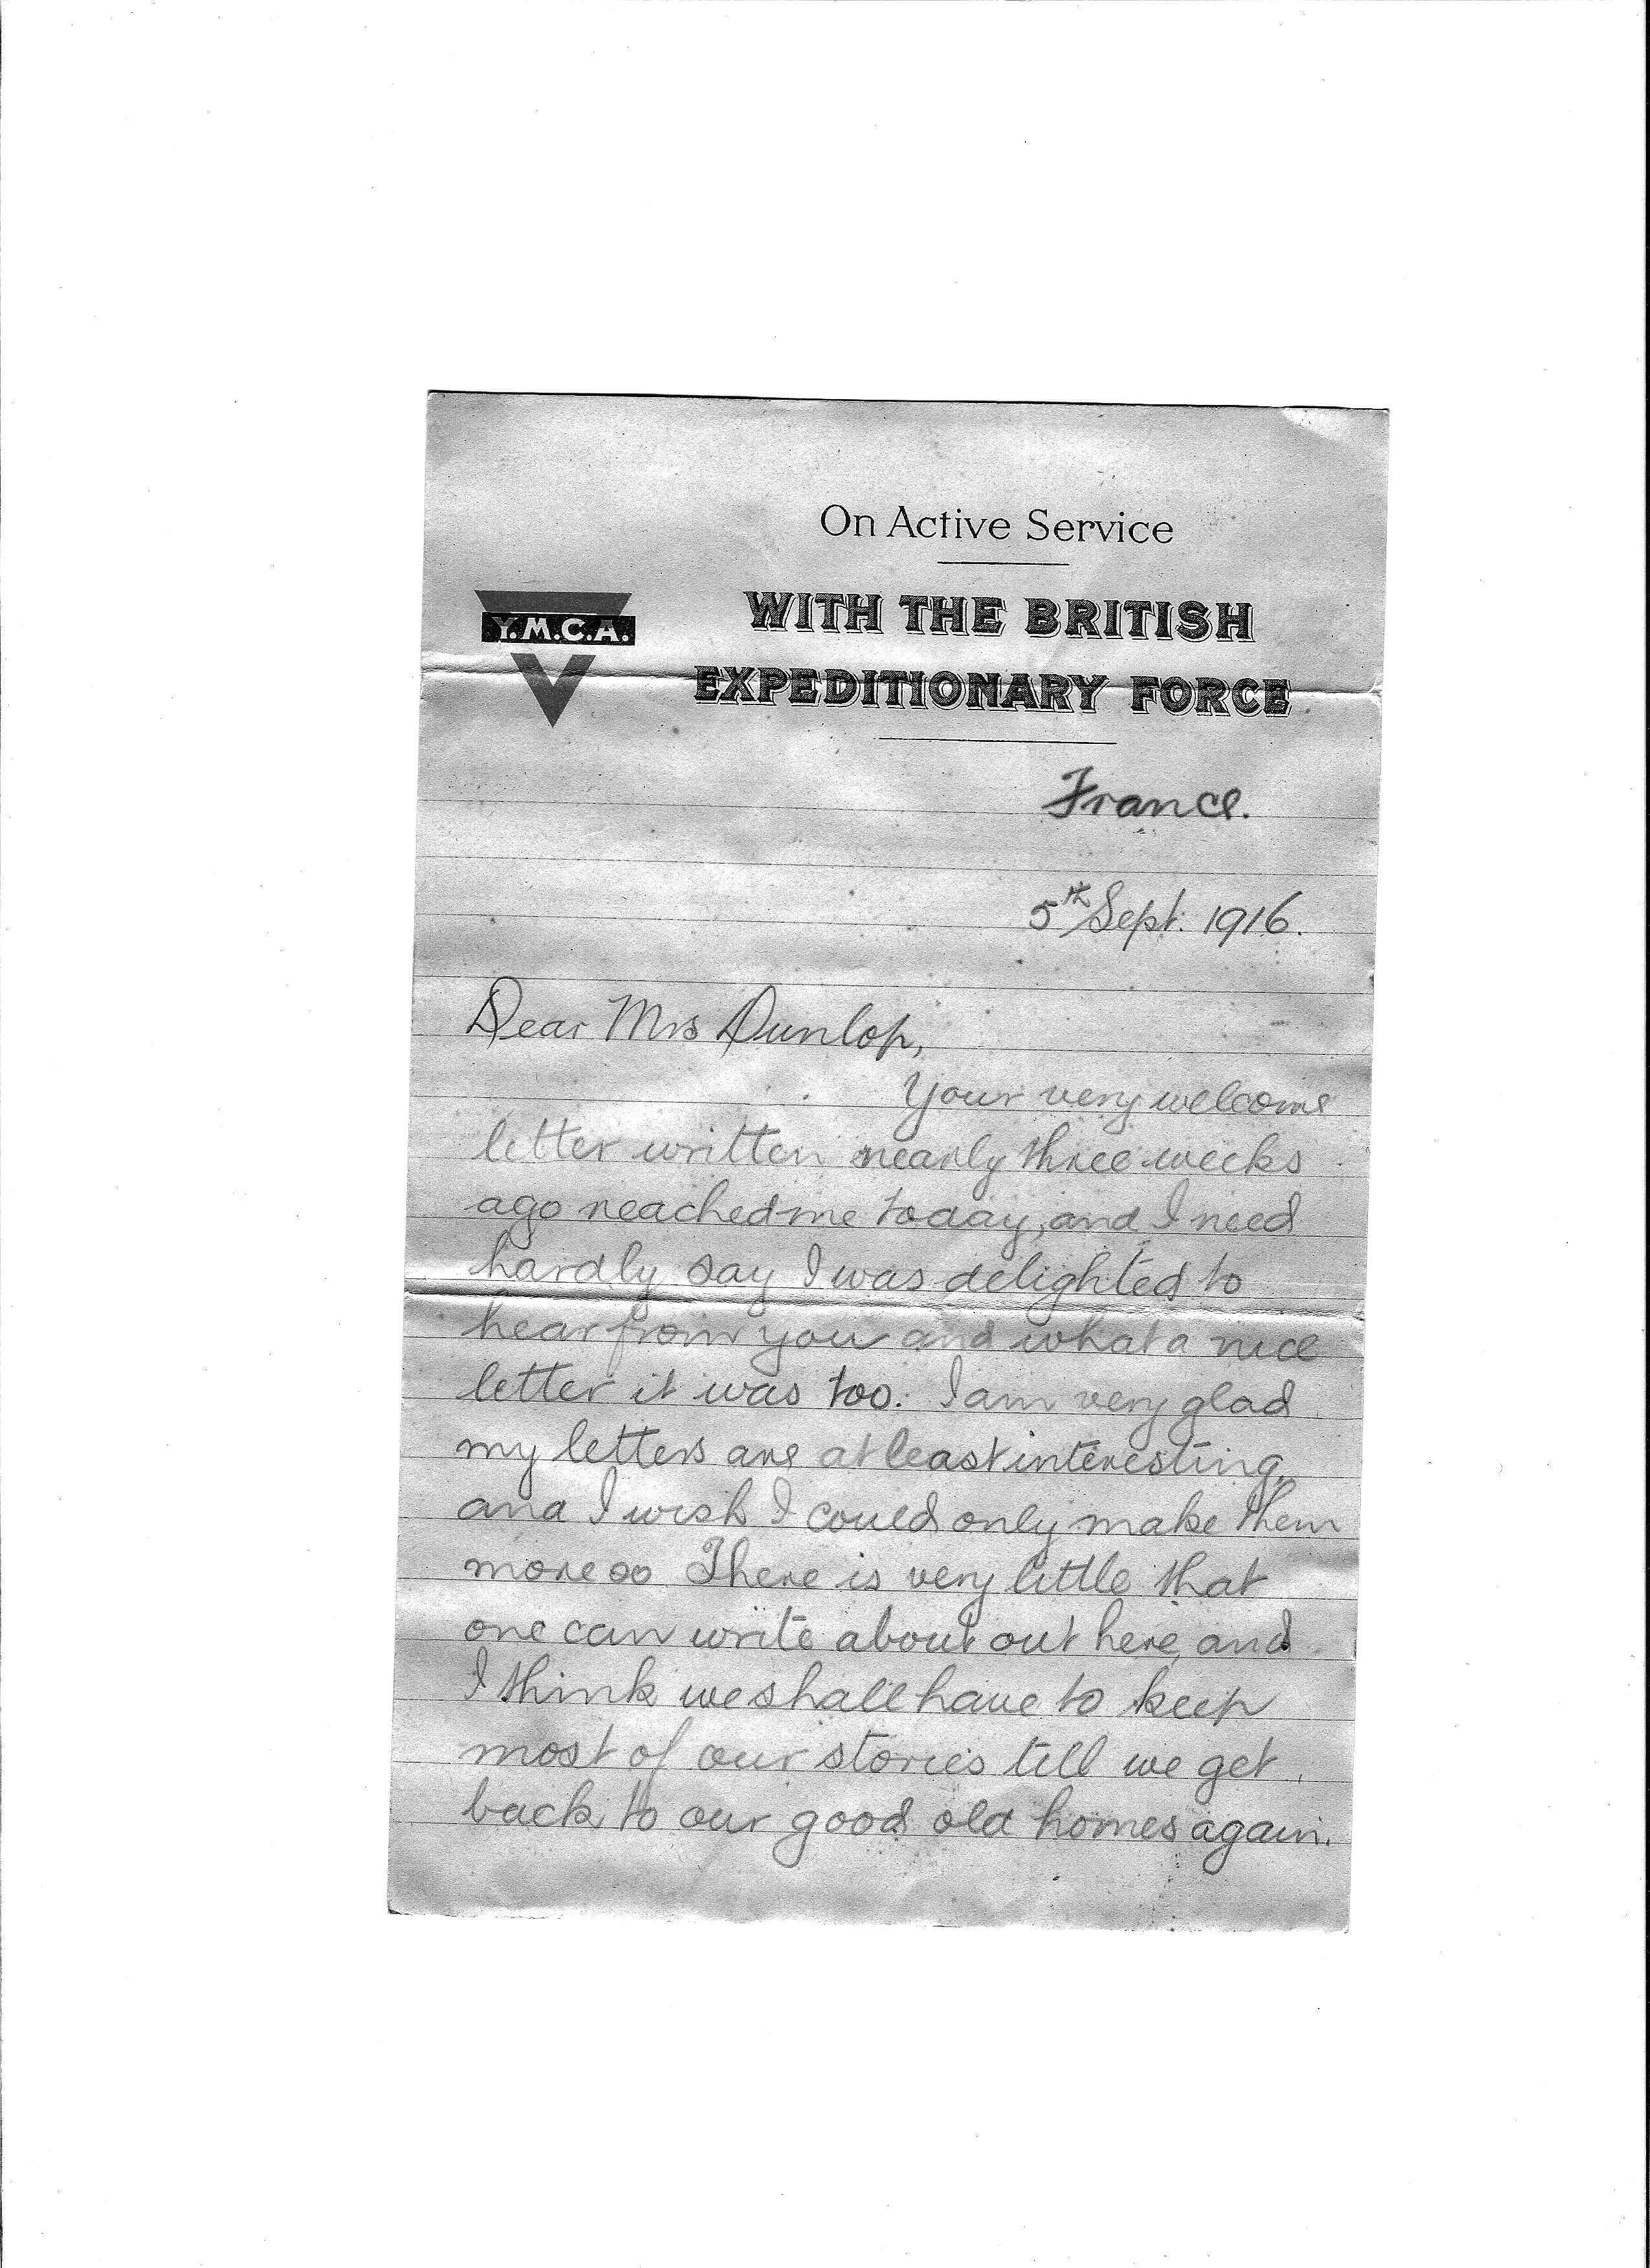 On Active Service
Y.M.C.A.
WITH THE BRITISH
EXPEDITIONARY FORCE
France.
5th Sept. 1916.
Dear Mrs Dunlop,
Your very welcome
letter written nearly three weeks
ago reached me today, and I need
hardly say I was delighted to
hear from you and what a nice
letter it was too. I am very glad
my letters are at least interesting,
and I wish I could only make them
more so There is very little that
one can write about out here, and
I think we shall have to keep
most of our stories till we get
back to our good old homes again.